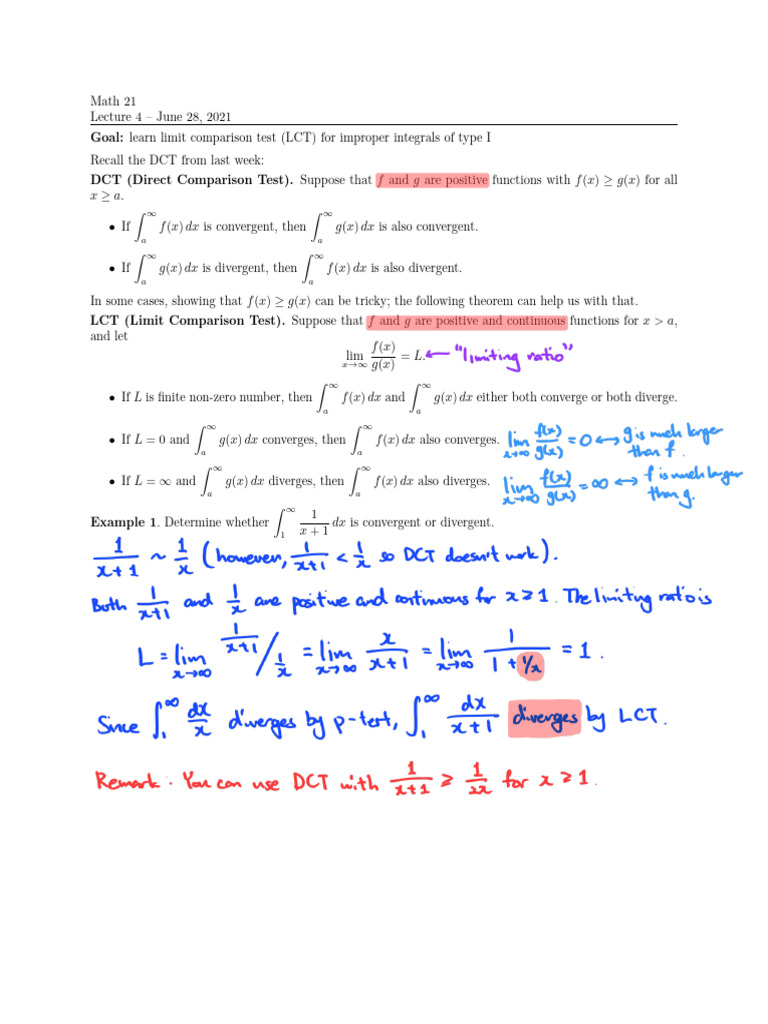 Math 21
Lecture 4 – June 28, 2021
Goal: learn limit comparison test (LCT) for improper integrals of type I
Recall the DCT from last week:
DCT (Direct Comparison Test). Suppose that f and g are positive functions with f(x) ≥ g(x) for all
x ≥ a.
• If ∫_a^∞ f(x) dx is convergent, then ∫_a^∞ g(x) dx is also convergent.
• If ∫_a^∞ g(x) dx is divergent, then ∫_a^∞ f(x) dx is also divergent.
In some cases, showing that f(x) ≥ g(x) can be tricky; the following theorem can help us with that.
LCT (Limit Comparison Test). Suppose that f and g are positive and continuous functions for x > a,
and let
lim_{x→∞} f(x)/g(x) = L. ← "limiting ratio"
• If L is finite non-zero number, then ∫_a^∞ f(x) dx and ∫_a^∞ g(x) dx either both converge or both diverge.
• If L = 0 and ∫_a^∞ g(x) dx converges, then ∫_a^∞ f(x) dx also converges. lim_{x→∞} f(x)/g(x) = 0 ↔ g is much larger
than f.
• If L = ∞ and ∫_a^∞ g(x) dx diverges, then ∫_a^∞ f(x) dx also diverges. lim_{x→∞} f(x)/g(x) = ∞ ↔ f is much larger
than g.
Example 1. Determine whether ∫_1^∞ 1/(x+1) dx is convergent or divergent.
1/(x+1) ~ 1/x (however, 1/(x+1) < 1/x so DCT doesn't work).
Both 1/(x+1) and 1/x are positive and continuous for x ≥ 1. The limiting ratio is
L = lim_{x→∞} 1/(x+1) / 1/x = lim_{x→∞} x/(x+1) = lim_{x→∞} 1/(1 + 1/x) = 1.
Since ∫_1^∞ dx/x diverges by p-test, ∫_1^∞ dx/(x+1) diverges by LCT.
Remark: You can use DCT with 1/(x+1) ≥ 1/2x for x ≥ 1.